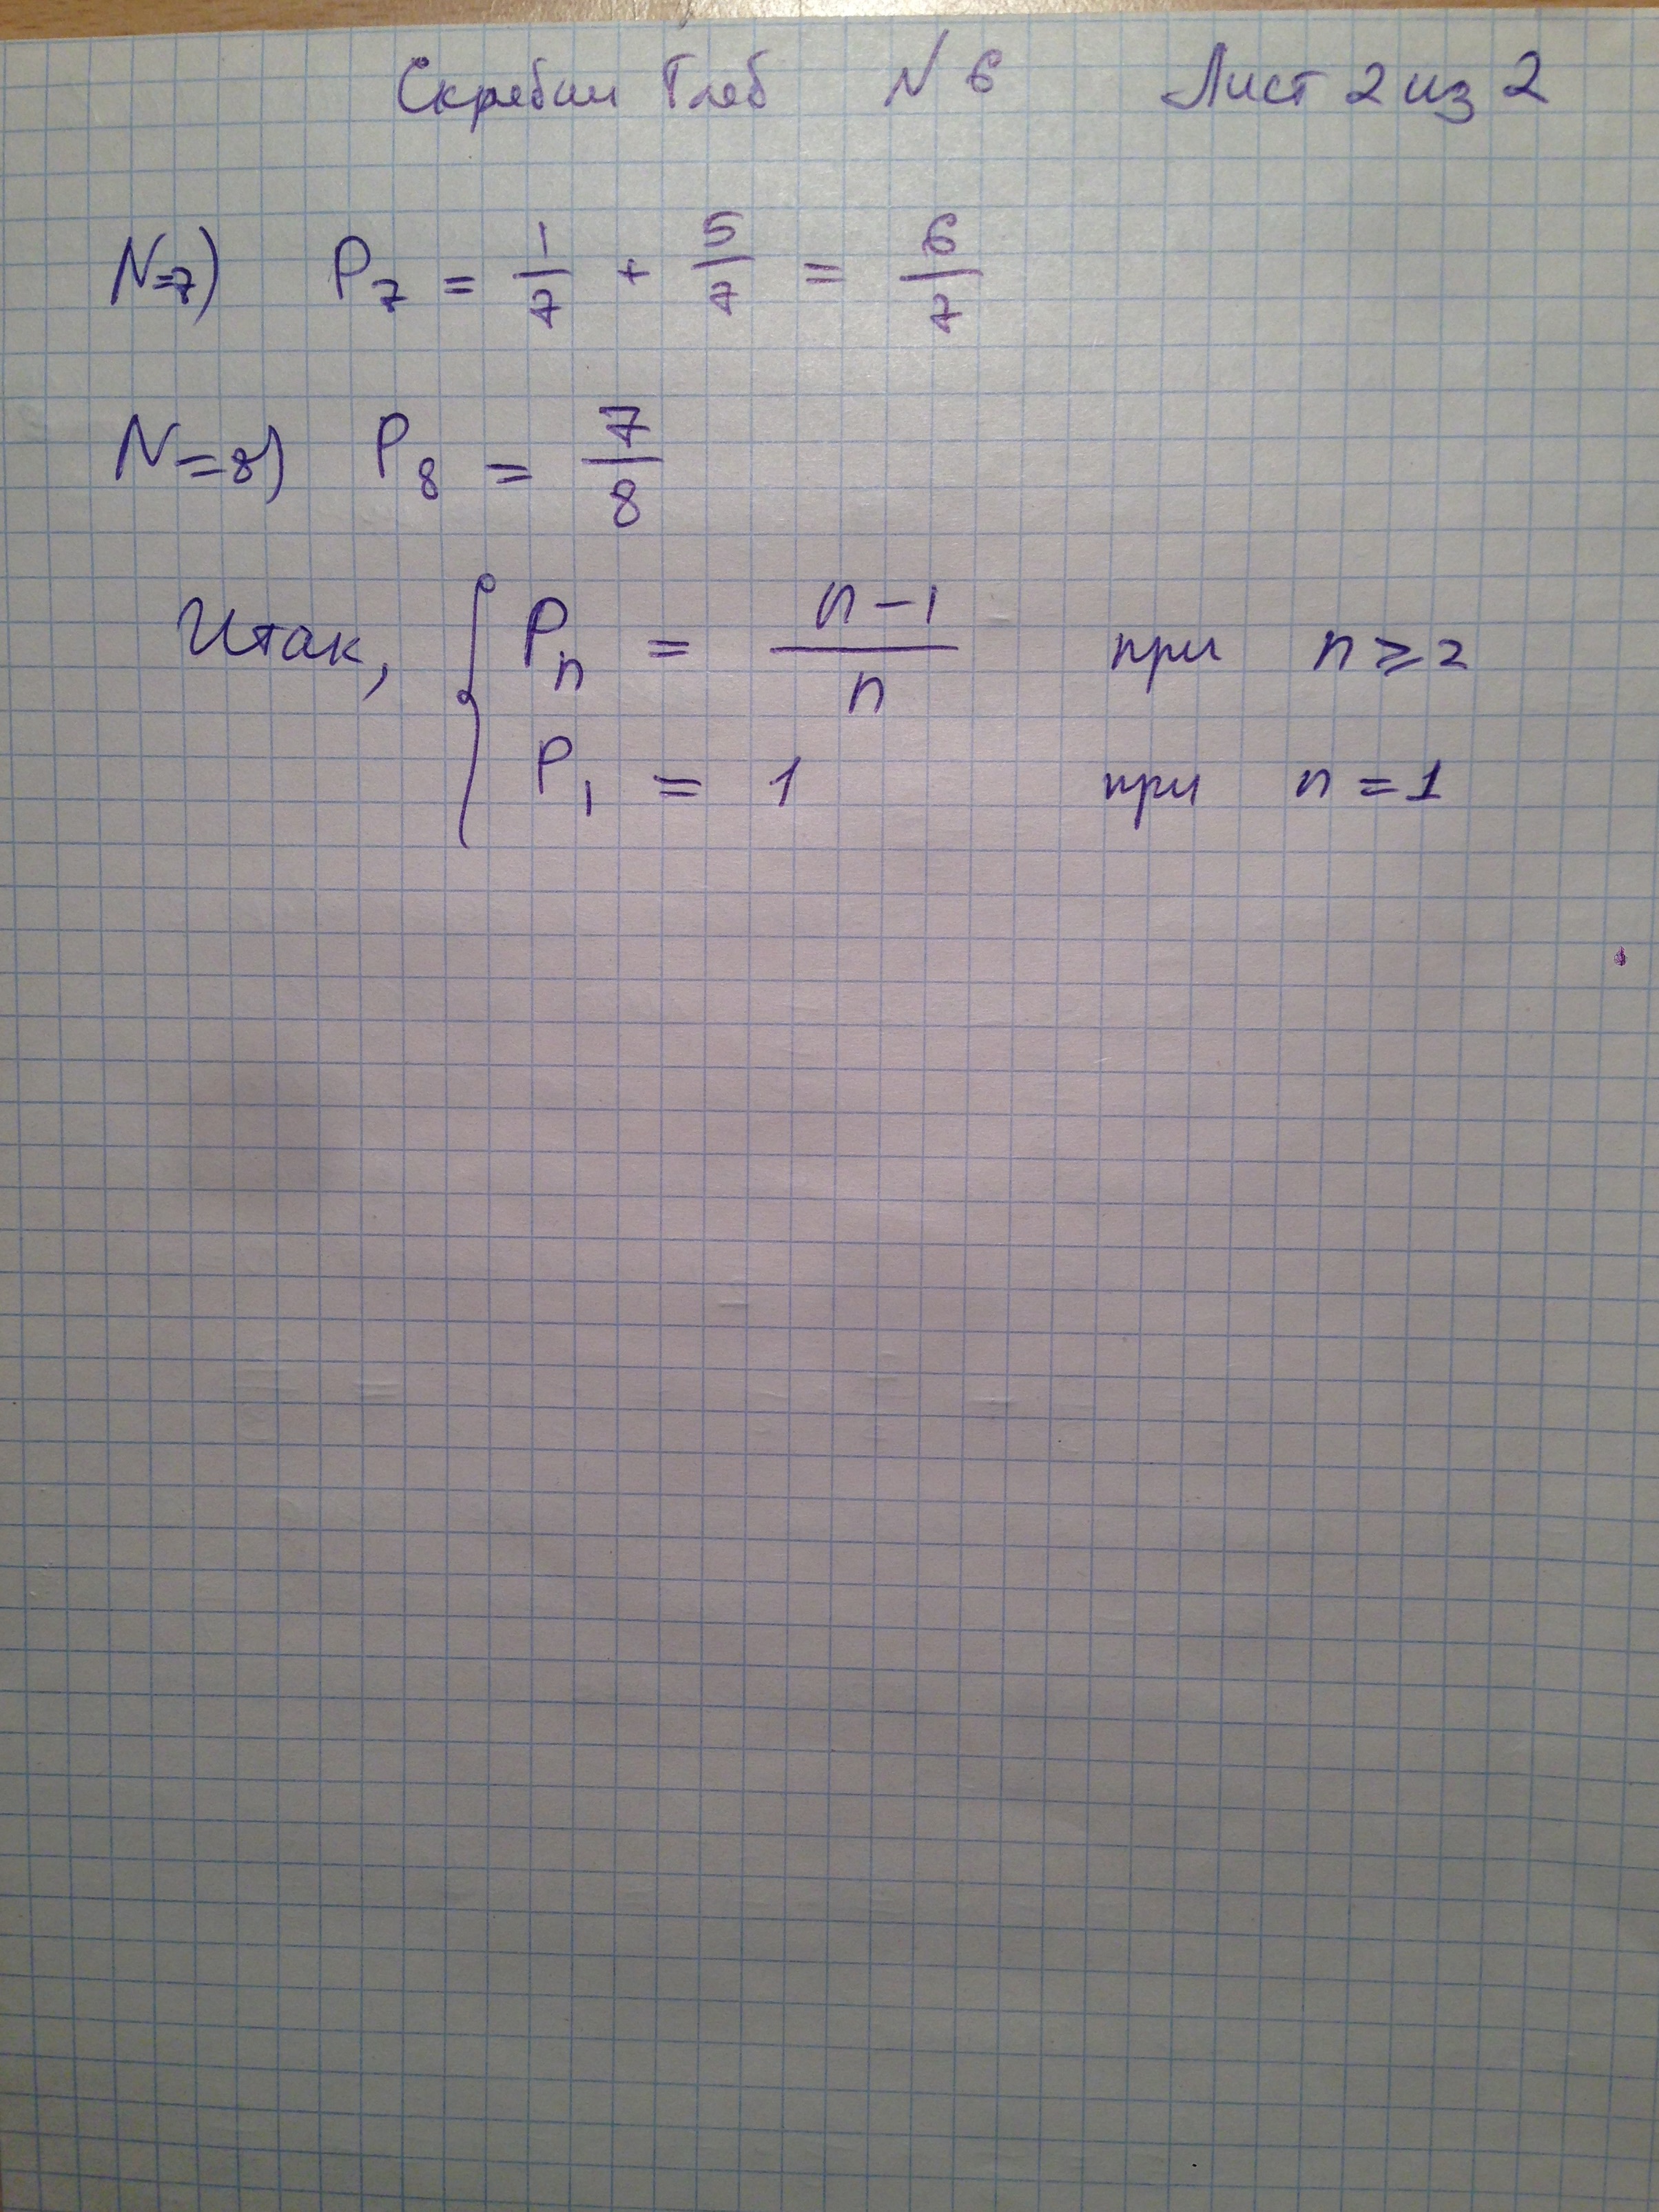 Скребин Глеб №6 Лист 2 из 2
N=7) P₇ = 1/7 + 5/7 = 6/7
N=8) P₈ = 7/8
Итак, { Pₙ = (n-1)/n при n ⩾ 2
P₁ = 1 при n = 1